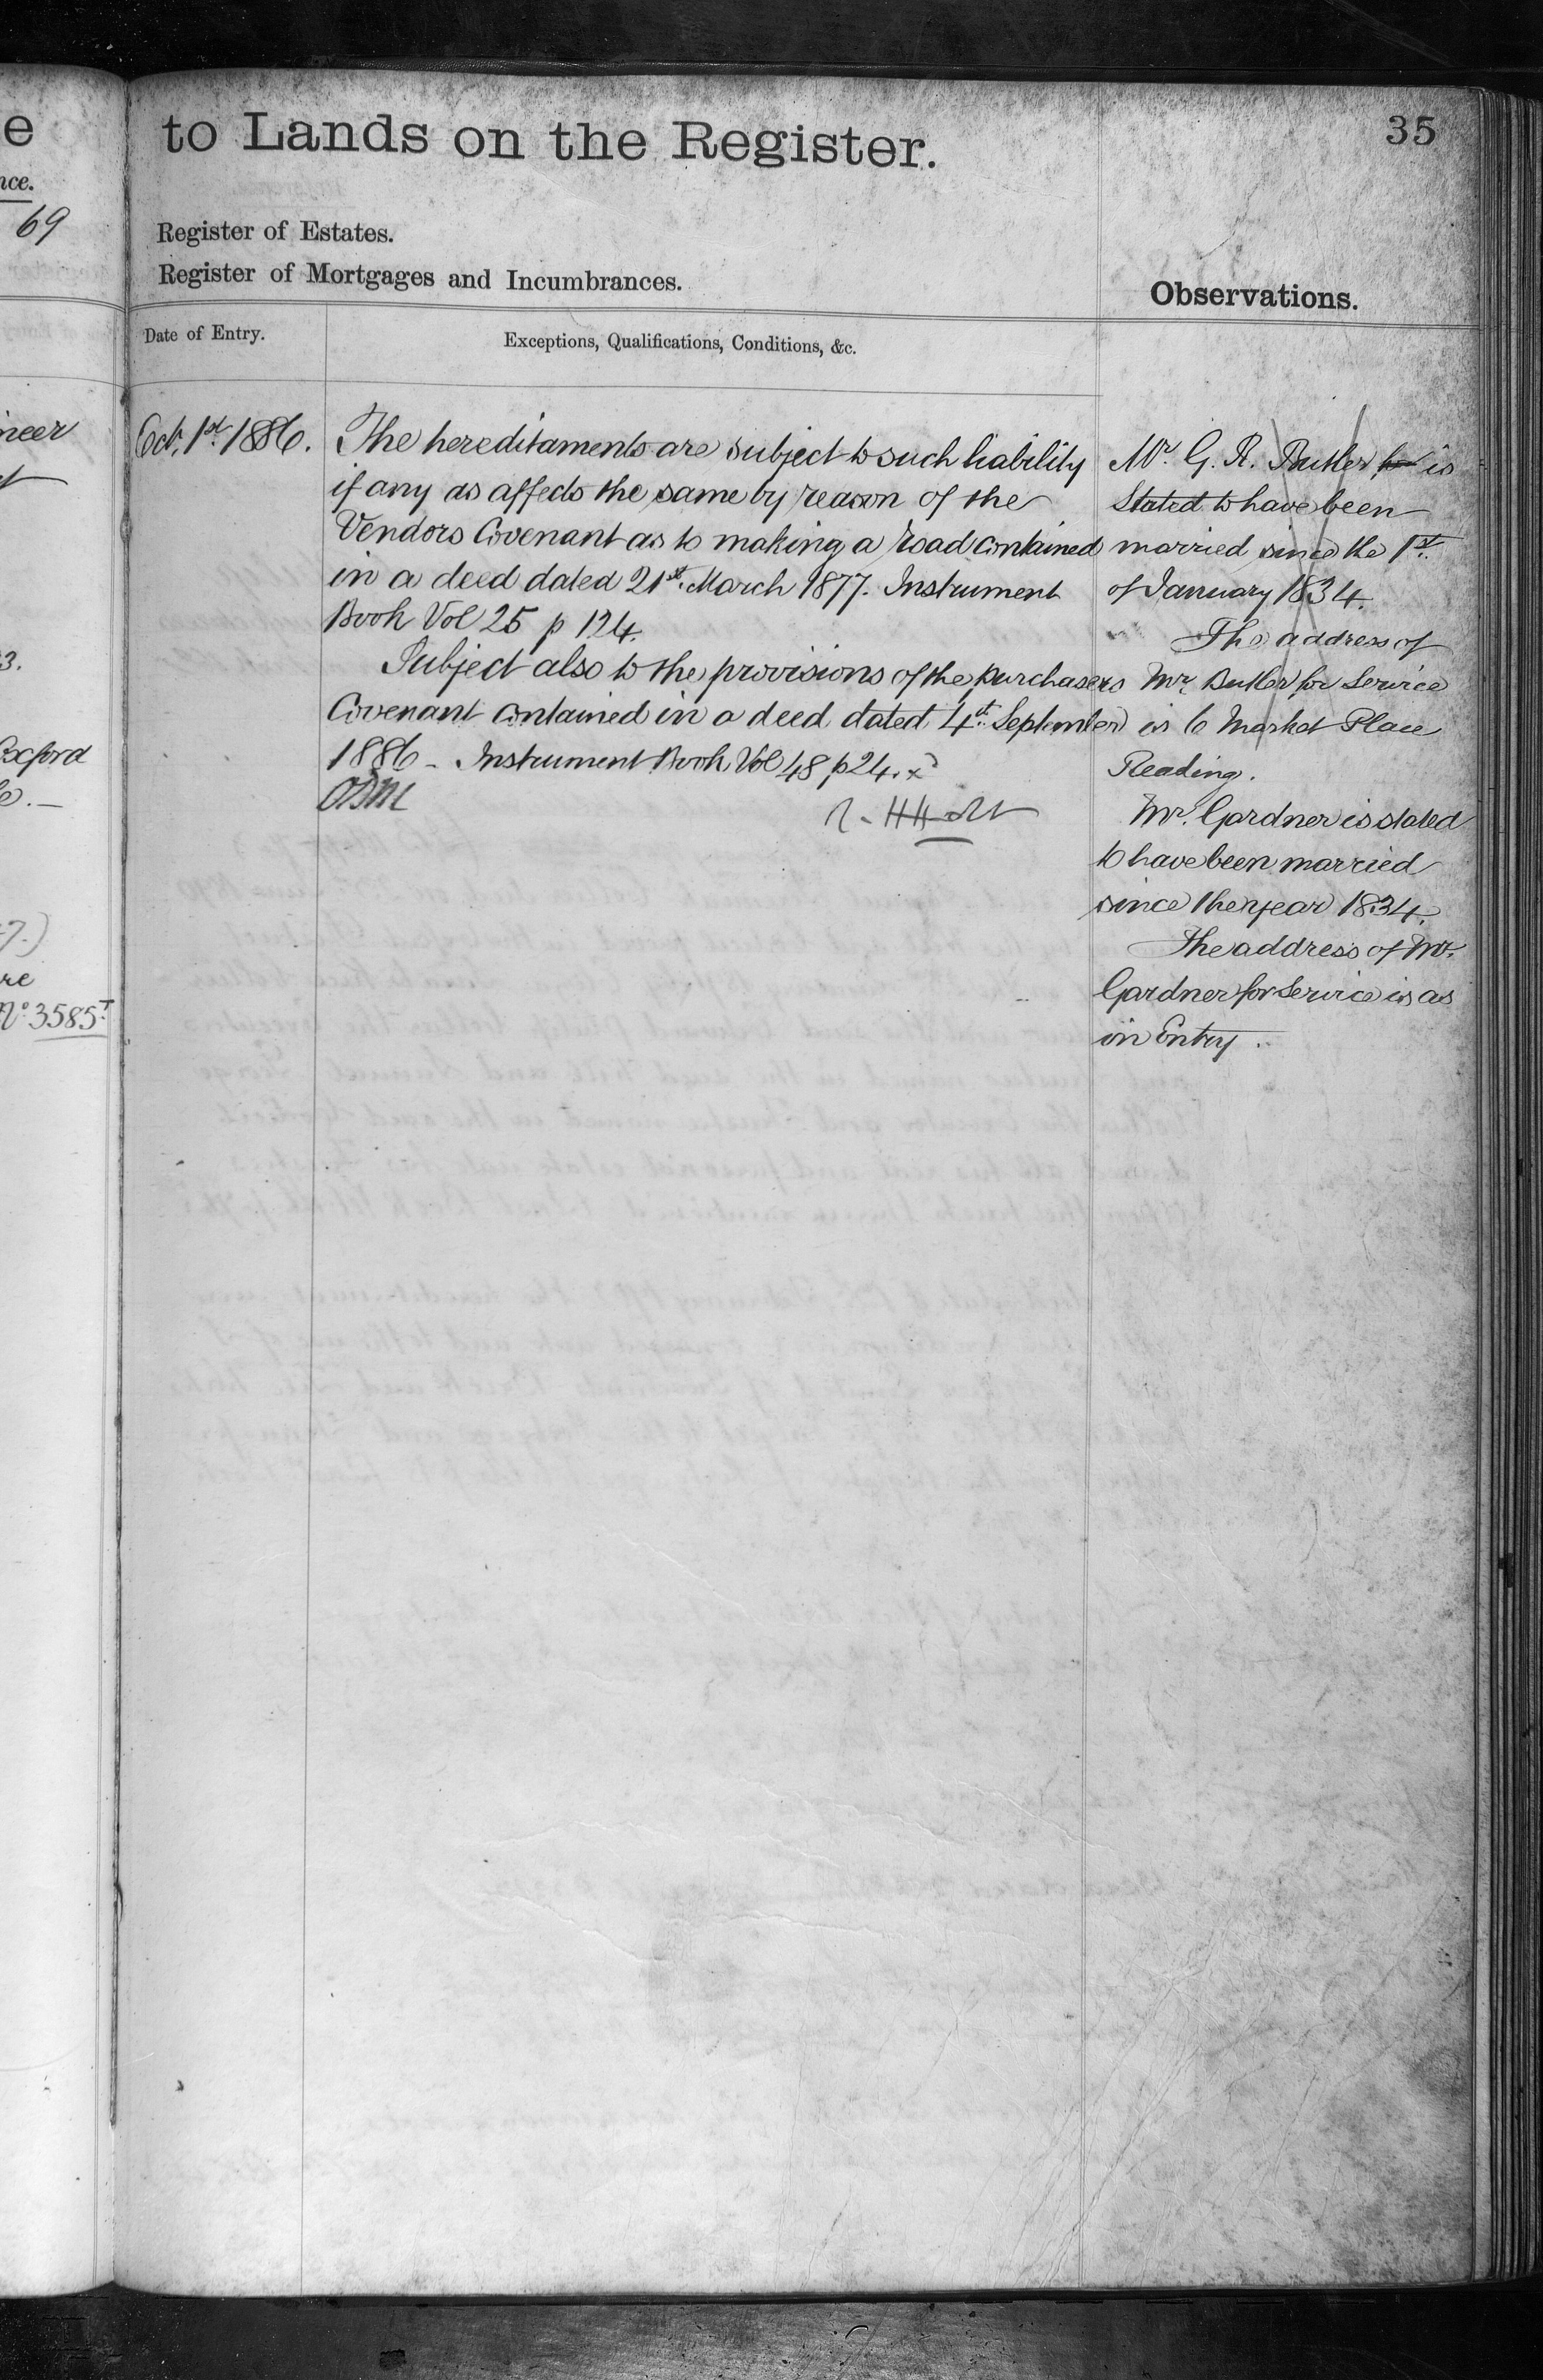 e
nce.
69
neer
3.
Oxford
7.)
re
No 3585T
to Lands on the Register.
35
Register of Estates.
Register of Mortgages and Incumbrances.
Observations.
Date of Entry.
Exceptions, Qualifications, Conditions, &c.
Oct. 1st 1886.
The hereditaments are subject to such liability
if any as affects the same by reason of the
Vendors Covenant as to making a road contained
in a deed dated 21st March 1877. Instrument
Book Vol 25 p 124.
Subject also to the provisions of the purchasers
Covenant contained in a deed dated 4th September
1886 - Instrument Book Vol 48 p 24. x
Mr. G. R. Butler is
Stated to have been
married since the 1st
of January 1834.
The address of
Mr. Butler for Service
is 6 Market Place
Reading.
Mr. Gardner is stated
to have been married
since the year 1834.
The address of Mr.
Gardner for Service is as
in Entry.